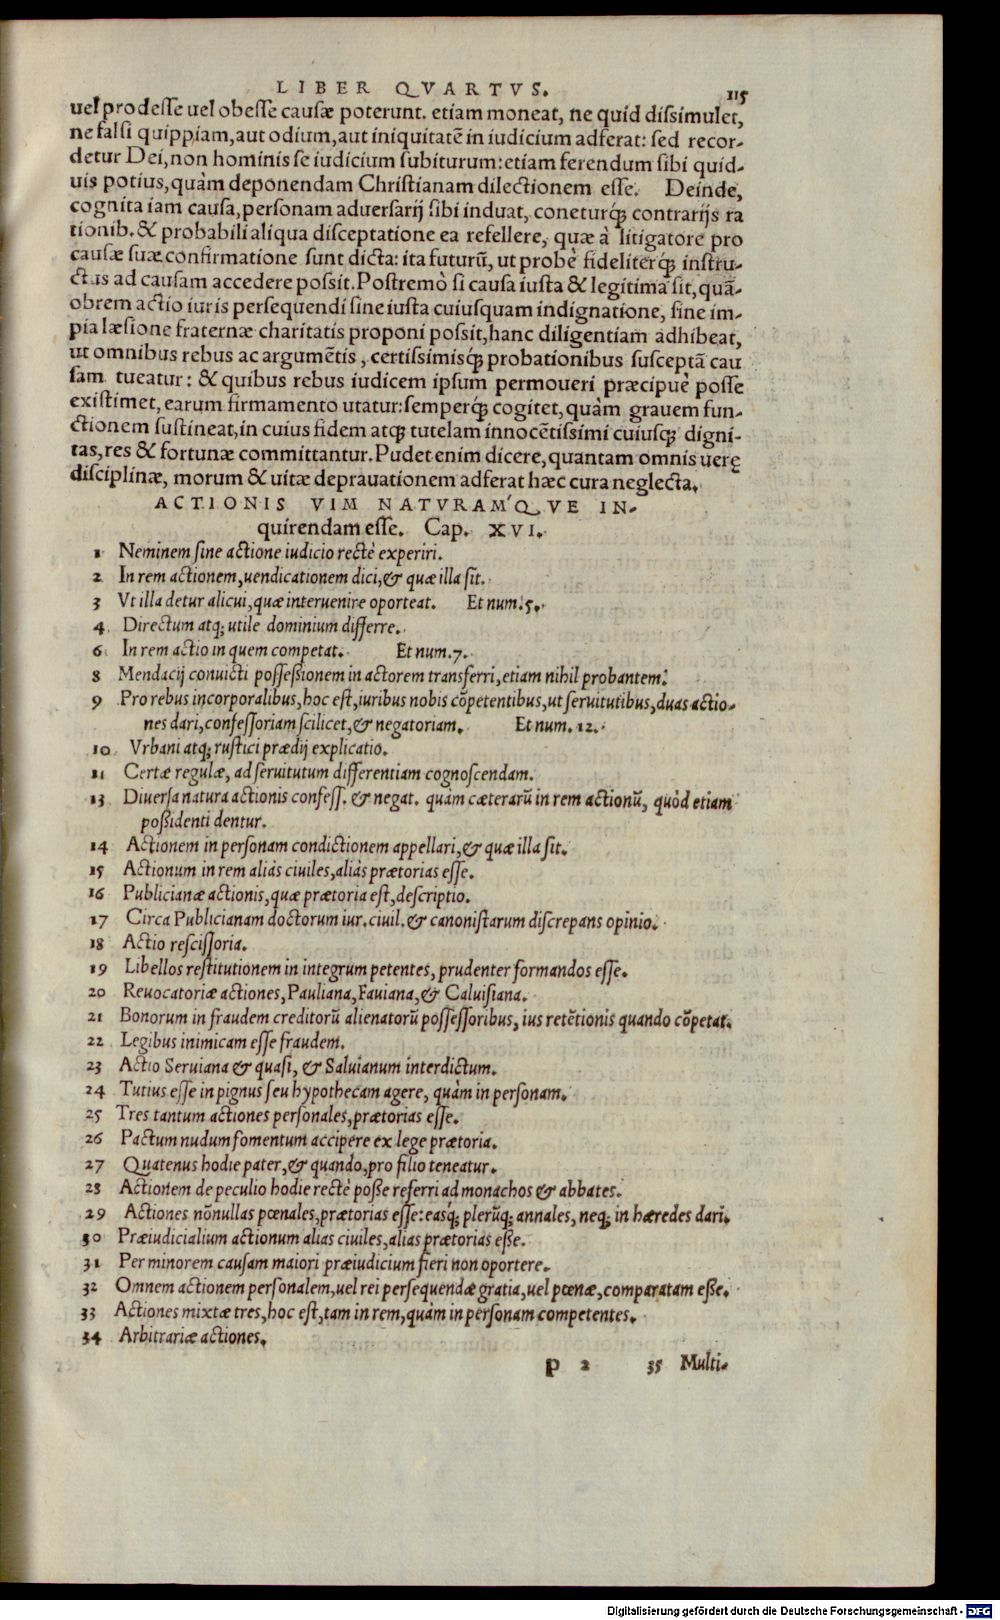 LIBER QVARTVS.
115
uel prodesse uel obesse causæ poterunt. etiam moneat, ne quid dissimulet,
ne falsi quippiam, aut odium, aut iniquitatē in iudicium adferat: sed recor-
detur Dei, non hominis se iudicium subiturum: etiam ferendum sibi quid-
uis potius, quàm deponendam Christianam dilectionem esse. Deinde,
cognita iam causa, personam aduersarij sibi induat, coneturq́; contrarijs ra
tionib. & probabili aliqua disceptatione ea refellere, quæ à litigatore pro
causæ suæ confirmatione sunt dicta: ita futurū, ut probè fideliterq́; instru-
ctus ad causam accedere possit. Postremò si causa iusta & legitima sit, quā-
obrem actio iuris persequendi sine iusta cuiusquam indignatione, sine im-
pia læsione fraternæ charitatis proponi possit, hanc diligentiam adhibeat,
ut omnibus rebus ac argumētis, certissimisq́; probationibus susceptā cau
sam tueatur: & quibus rebus iudicem ipsum permoueri præcipuè posse
existimet, earum firmamento utatur: semperq́; cogitet, quàm grauem fun-
ctionem sustineat, in cuius fidem atq; tutelam innocētissimi cuiusq; digni-
tas, res & fortunæ committantur. Pudet enim dicere, quantam omnis ueræ
disciplinæ, morum & uitæ deprauationem adferat hæc cura neglecta.
ACTIONIS VIM NATVRAM'QVE IN-
quirendam esse. Cap. XVI.
1 Neminem sine actione iudicio rectè experiri.
2 In rem actionem, uendicationem dici, & quæ illa sit.
3 Vt illa detur alicui, quæ interuenire oporteat. Et num. 5.
4 Directum atq; utile dominium differre.
6 In rem actio in quem competat. Et num. 7.
8 Mendacij conuicti possessionem in actorem transferri, etiam nihil probantem.
9 Pro rebus incorporalibus, hoc est, iuribus nobis cōpetentibus, ut seruitutibus, duas actio-
nes dari, confessoriam scilicet, & negatoriam. Et num. 12.
10 Vrbani atq; rustici prædij explicatio.
11 Certæ regulæ, ad seruitutum differentiam cognoscendam.
13 Diuersa natura actionis confess. & negat. quàm cæterarū in rem actionū, quòd etiam
possidenti dentur.
14 Actionem in personam condictionem appellari, & quæ illa sit.
15 Actionum in rem aliàs ciuiles, aliàs prætorias esse.
16 Publicianæ actionis, quæ prætoria est, descriptio.
17 Circa Publicianam doctorum iur. ciuil. & canonistarum discrepans opinio.
18 Actio rescissoria.
19 Libellos restitutionem in integrum petentes, prudenter formandos esse.
20 Reuocatoriæ actiones, Pauliana, Fauiana, & Caluisiana.
21 Bonorum in fraudem creditorū alienatorū possessoribus, ius retētionis quando cōpetat.
22 Legibus inimicam esse fraudem.
23 Actio Seruiana & quasi, & Saluianum interdictum.
24 Tutius esse in pignus seu hypothecam agere, quàm in personam.
25 Tres tantum actiones personales, prætorias esse.
26 Pactum nudum fomentum accipere ex lege prætoria.
27 Quatenus hodie pater, & quando, pro filio teneatur.
28 Actionem de peculio hodie rectè posse referri ad monachos & abbates.
29 Actiones nōnullas pœnales, prætorias esse: easq́; plerūq; annales, neq; in hæredes dari.
30 Præiudicialium actionum alias ciuiles, alias prætorias esse.
31 Per minorem causam maiori præiudicium fieri non oportere.
32 Omnem actionem personalem, uel rei persequendæ gratia, uel pœnæ, comparatam esse.
33 Actiones mixtæ tres, hoc est, tam in rem, quàm in personam competentes.
34 Arbitrariæ actiones.
p 2 35 Multi-
Digitalisierung gefördert durch die Deutsche Forschungsgemeinschaft - DFG